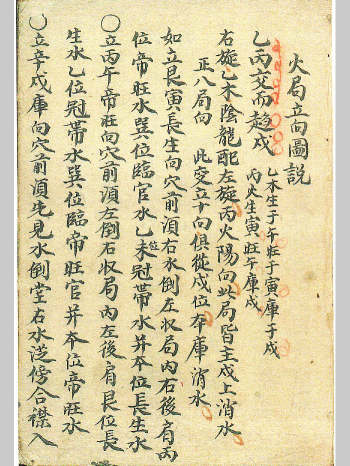 火局立向圖說
乙丙交而趨戌
乙木生于午旺于寅庫于戌
丙火生寅旺午庫戌
右旋乙木陰龍配左旋丙火陽向此局皆主戌上消水
正八局向　此交立十向俱從戌位夲庫消水
如立艮寅長生向穴前湏右水倒左収局內右後肩丙
位帝旺水巽位臨官水乙未位冠帶水并夲位長生水
〇立丙午帝旺向穴前湏左倒右収局內左後肩艮位長
生水乙位冠帶水巽位臨帝旺官并夲位帝旺水
〇立辛戌庫向穴前湏先見水倒堂右水從傍合襟入